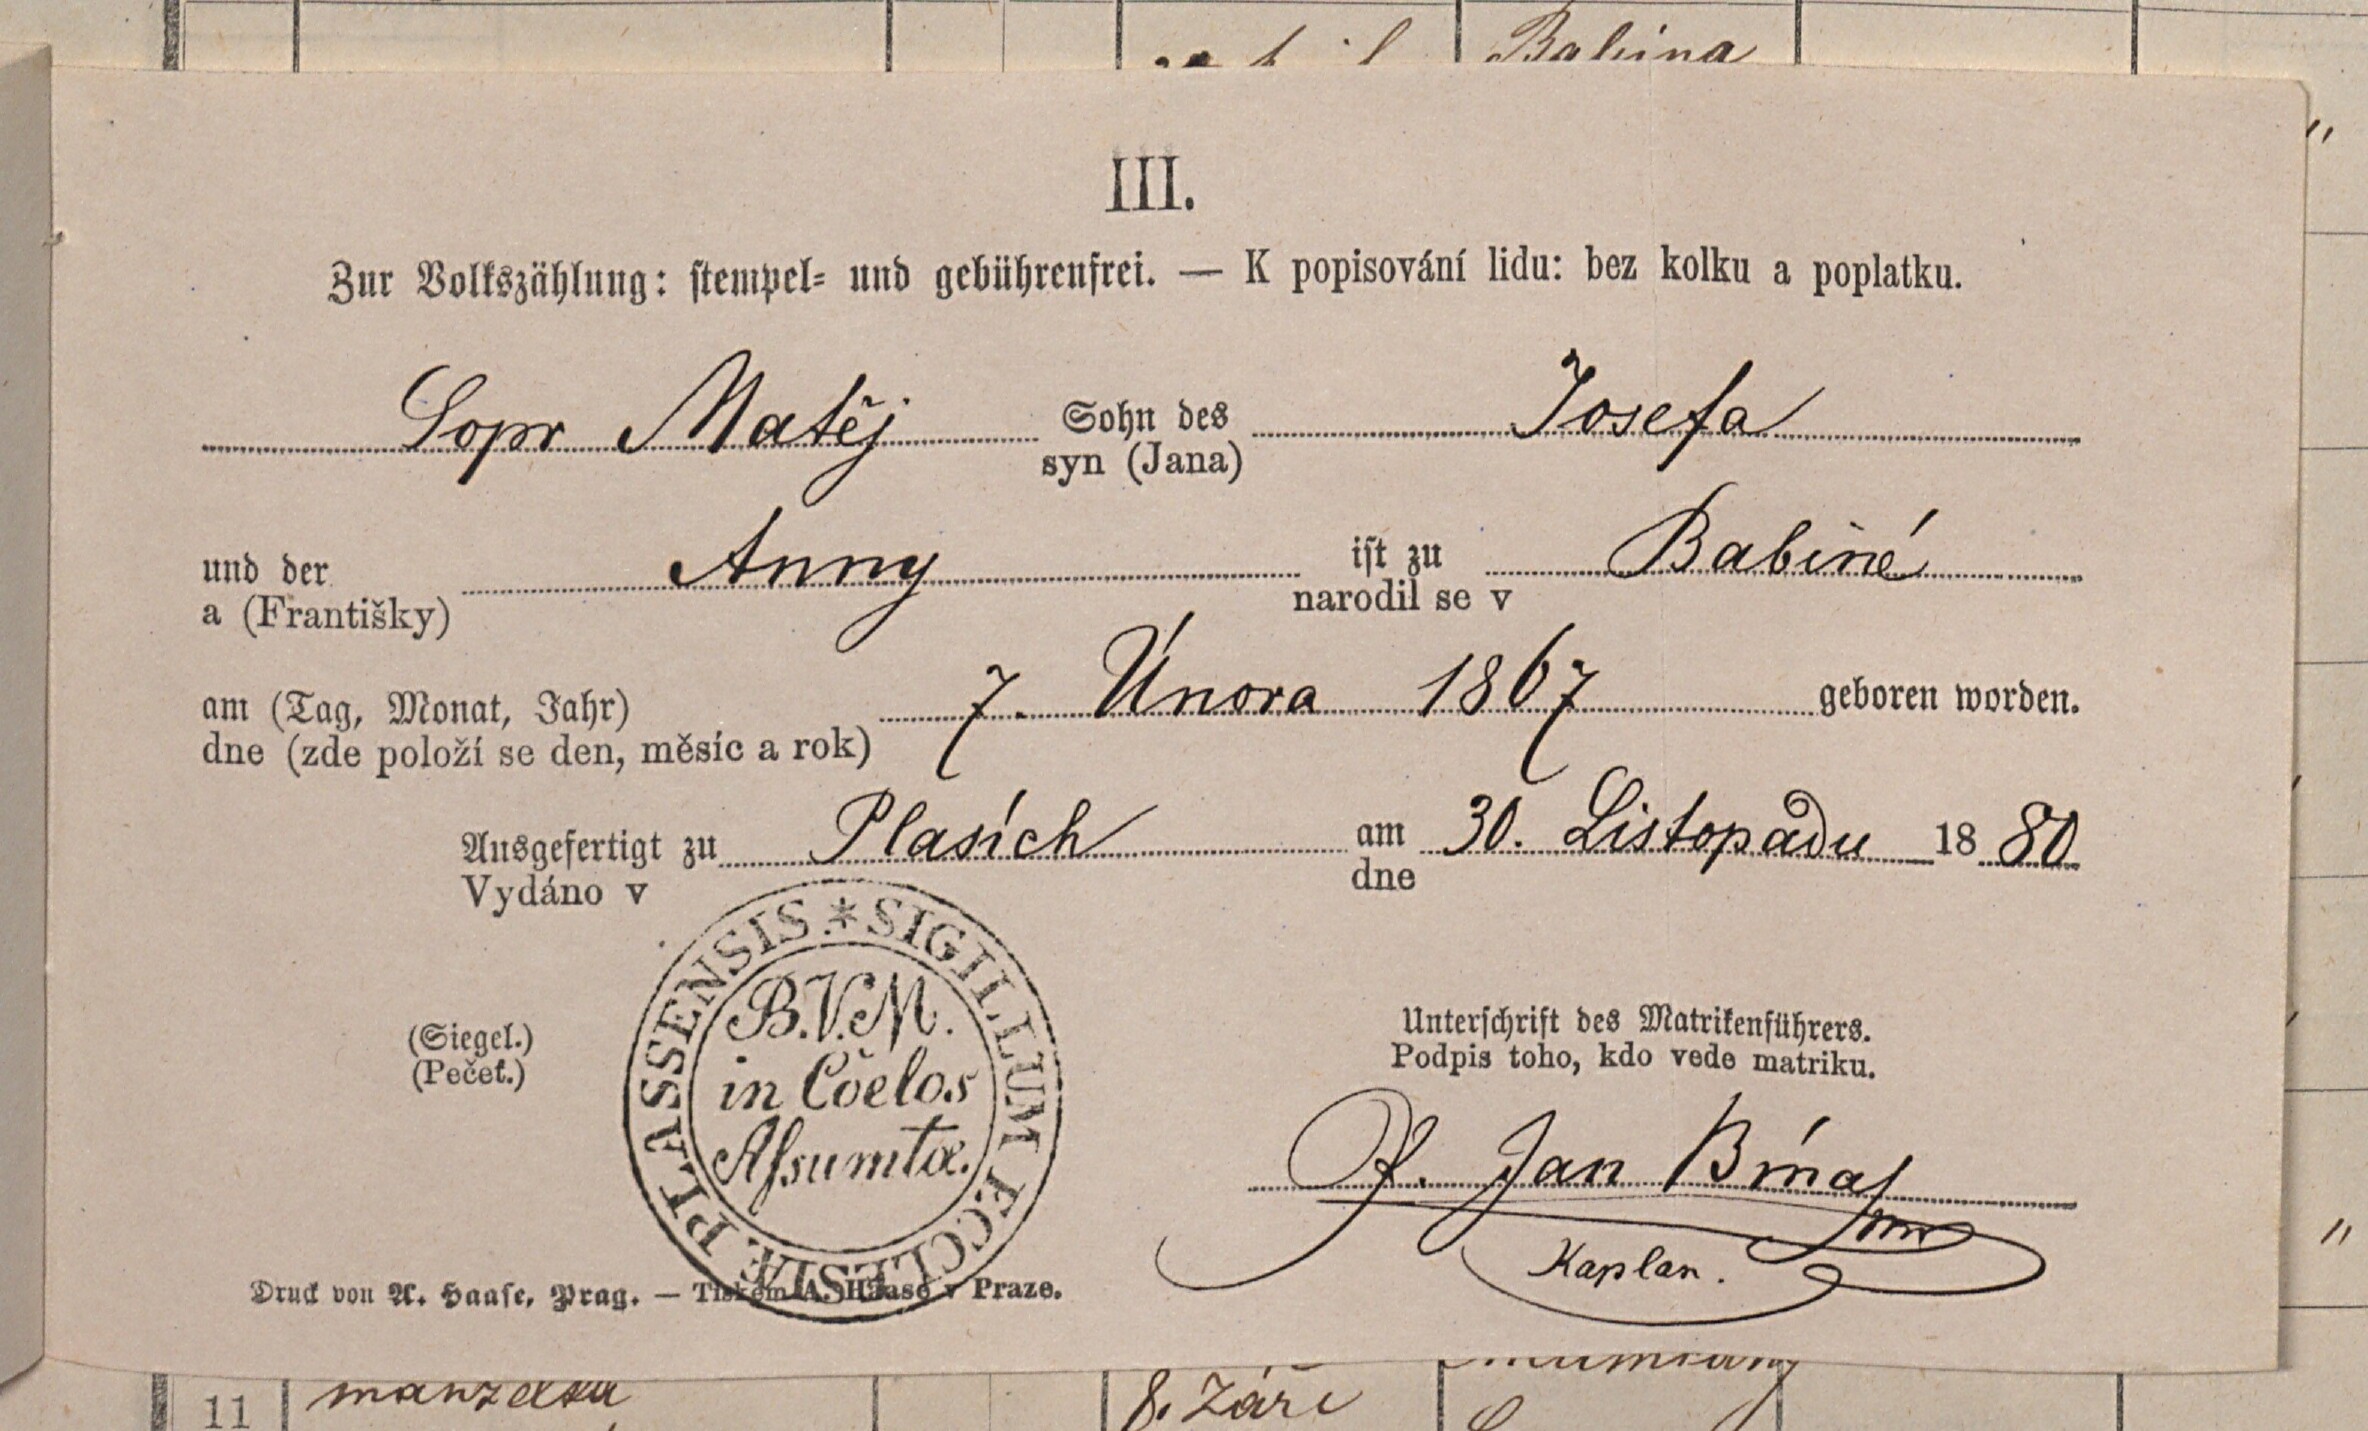 Babina
"
III.
Zur Volkszählung: stempel= und gebührenfrei. — K popisování lidu: bez kolku a poplatku.
Sopr Matěj Sohn des Josefa
syn (Jana)
und der Anny ist zu Babině
a (Františky) narodil se v
am (Tag, Monat, Jahr) 7. Února 1867 geboren worden.
dne (zde položí se den, měsíc a rok)
Ausgefertigt zu Plasích am 30. Listopadu 1880
Vydáno v dne
SIGILLUM ECCLESIÆ PLASSENSIS. *
B.V.M.
in Cœlos
Assumtæ.
(Siegel.)
(Pečeť.)
Unterschrift des Matrikenführers.
Podpis toho, kdo vede matriku.
P. Jan
Kaplan.
Druck von A. Haase, Prag. — Tiskem A. Haase v Praze.
"
11 manželka 8. Září